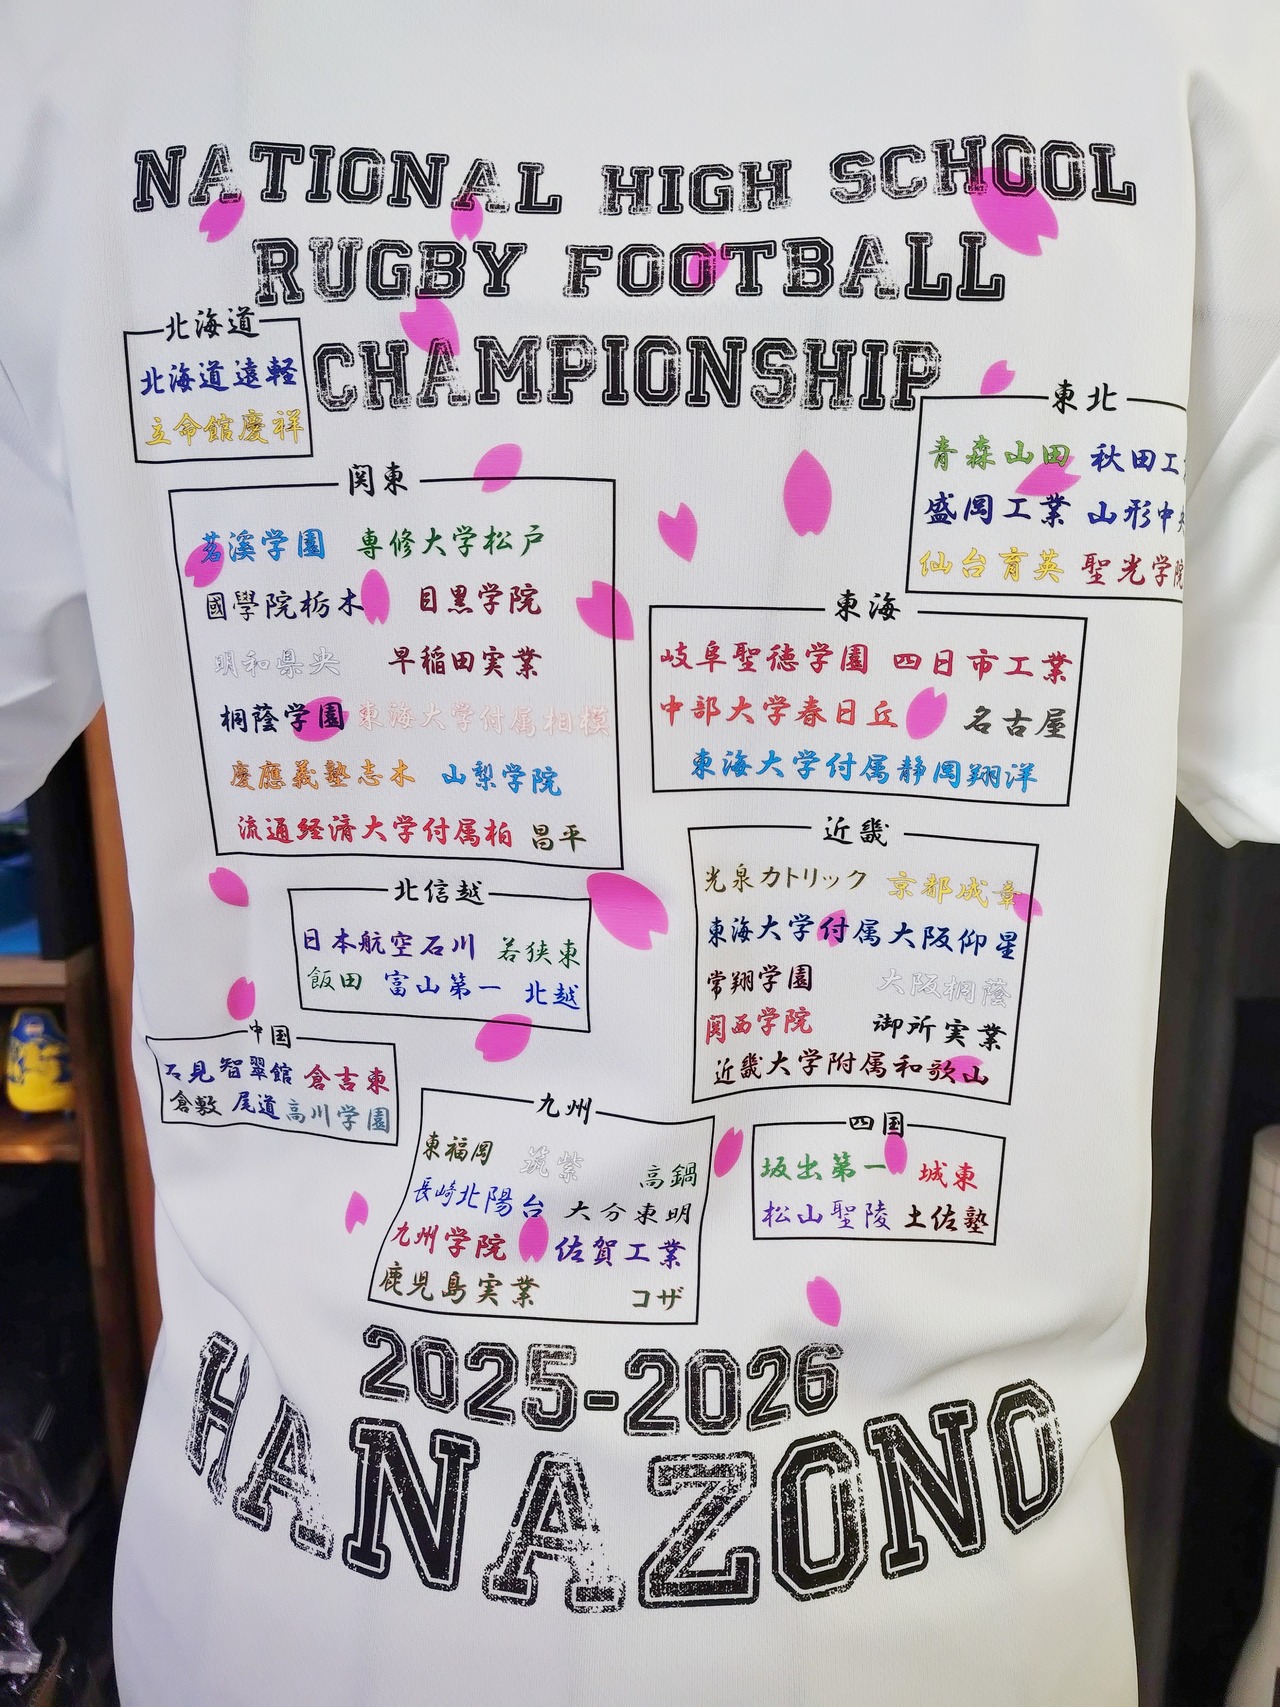 NATIONAL HIGH SCHOOL
RUGBY FOOTBALL
CHAMPIONSHIP
北海道
北海道遠軽
立命館慶祥
東北
青森山田 秋田工
盛岡工業 山形中
仙台育英 聖光学院
関東
茗溪学園 専修大学松戸
國學院栃木 目黒学院
明和県央 早稲田実業
桐蔭学園 東海大学付属相模
慶應義塾志木 山梨学院
流通経済大学付属柏 昌平
東海
岐阜聖徳学園 四日市工業
中部大学春日丘 名古屋
東海大学付属静岡翔洋
近畿
光泉カトリック 京都成章
東海大学付属大阪仰星
常翔学園 大阪桐蔭
関西学院 御所実業
近畿大学附属和歌山
北信越
日本航空石川 若狭東
飯田 富山第一 北越
中国
石見智翠館 倉吉東
倉敷 尾道 高川学園
九州
東福岡 筑紫 高鍋
長崎北陽台 大分東明
九州学院 佐賀工業
鹿児島実業 コザ
四国
坂出第一 城東
松山聖陵 土佐塾
2025-2026
HANAZONO